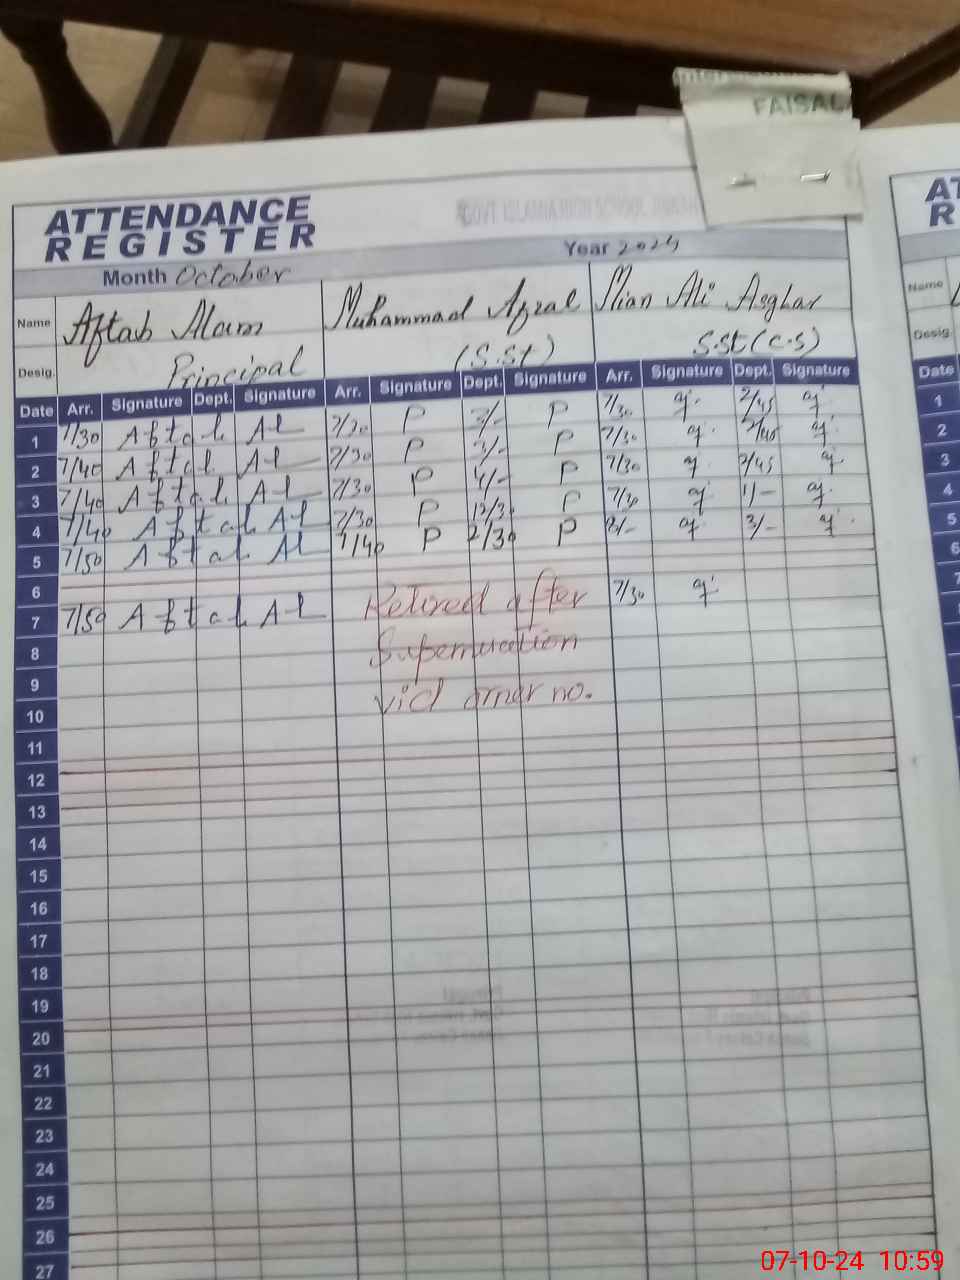 FAISAL
ATTENDANCE
REGISTER
GOVT ISLAMIA HIGH SCHOOL
Month October Year 2024
Name Aftab Alam Muhammad Afzal Mian Ali Asghar
Desig. Principal (S.St) S.St (C.S)
Date Arr. Signature Dept. Signature Arr. Signature Dept. Signature Arr. Signature Dept. Signature
1 7/30 Aftab Al 7/30 P P 7/30 2/45
2 7/40 Aftab Al 7/30 P 3/- P 7/30
3 7/40 Aftab Al 7/30 P 4/- P 7/30 2/45
4 7/40 Aftab Al 7/30 P 12/30 P 7/30 1/-
5 7/50 Aftab Al 7/40 P 2/30 P 8/- 3/-
6
7 7/50 Aftab Al Retired after 7/30
8
9 no.
10
11
12
13
14
15
16
17
18
19
20
21
22
23
24
25
26
27
AT
R
Name
Desig.
Date
1
2
3
4
5
6
7
07-10-24 10:59